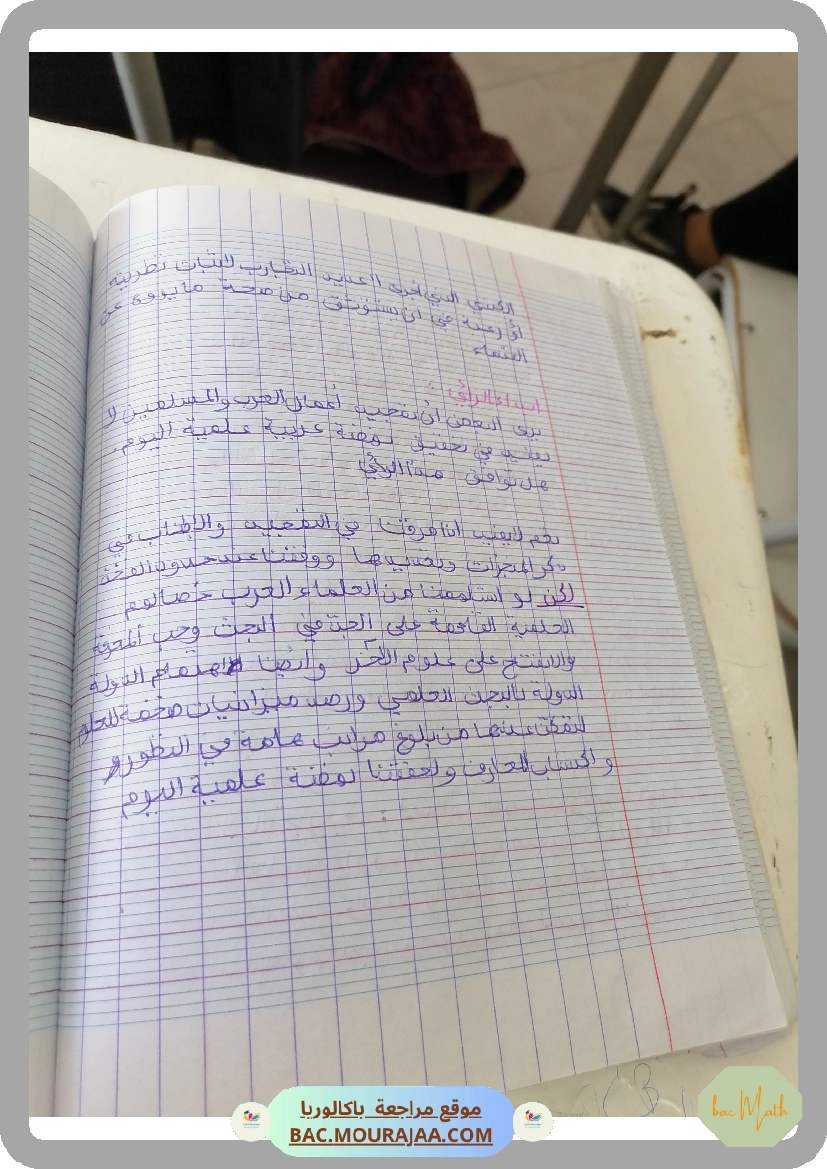 الكسي الذي أجرى العديد التجارب لإثبات نظريته
أو رغبة في أن يستوثق من صحة ما يروى عن
القدماء
ابداء الرأي :
يرى البعض أن تمجيد أعمال العرب والمسلمين لا
يفيد في تحقيق نهضة عربية علمية اليوم.
هل توافق هذا الرأي
نعم لا يفيد إذا أفرقنا في التمجيد والإطناب في
ذكر المنجزات وتعديدها ووقفنا عند حدود الفخر
لكن لو استلهمنا من العلماء العرب خصالهم
العلمية القائمة على الجد في البحث وحب المعرفة
والانفتاح على علوم الآخر وأيضا اهتمام الدولة
الدولة بالبحث العلمي ورصد ميزانيات ضخمة للعلوم
لتمكنا عندها من بلوغ مراتب هامة في التطور
و اكتساب المعارف ولحققنا نهضة علمية اليوم
موقع مراجعة باكالوريا
BAC.MOURAJAA.COM
bac Math